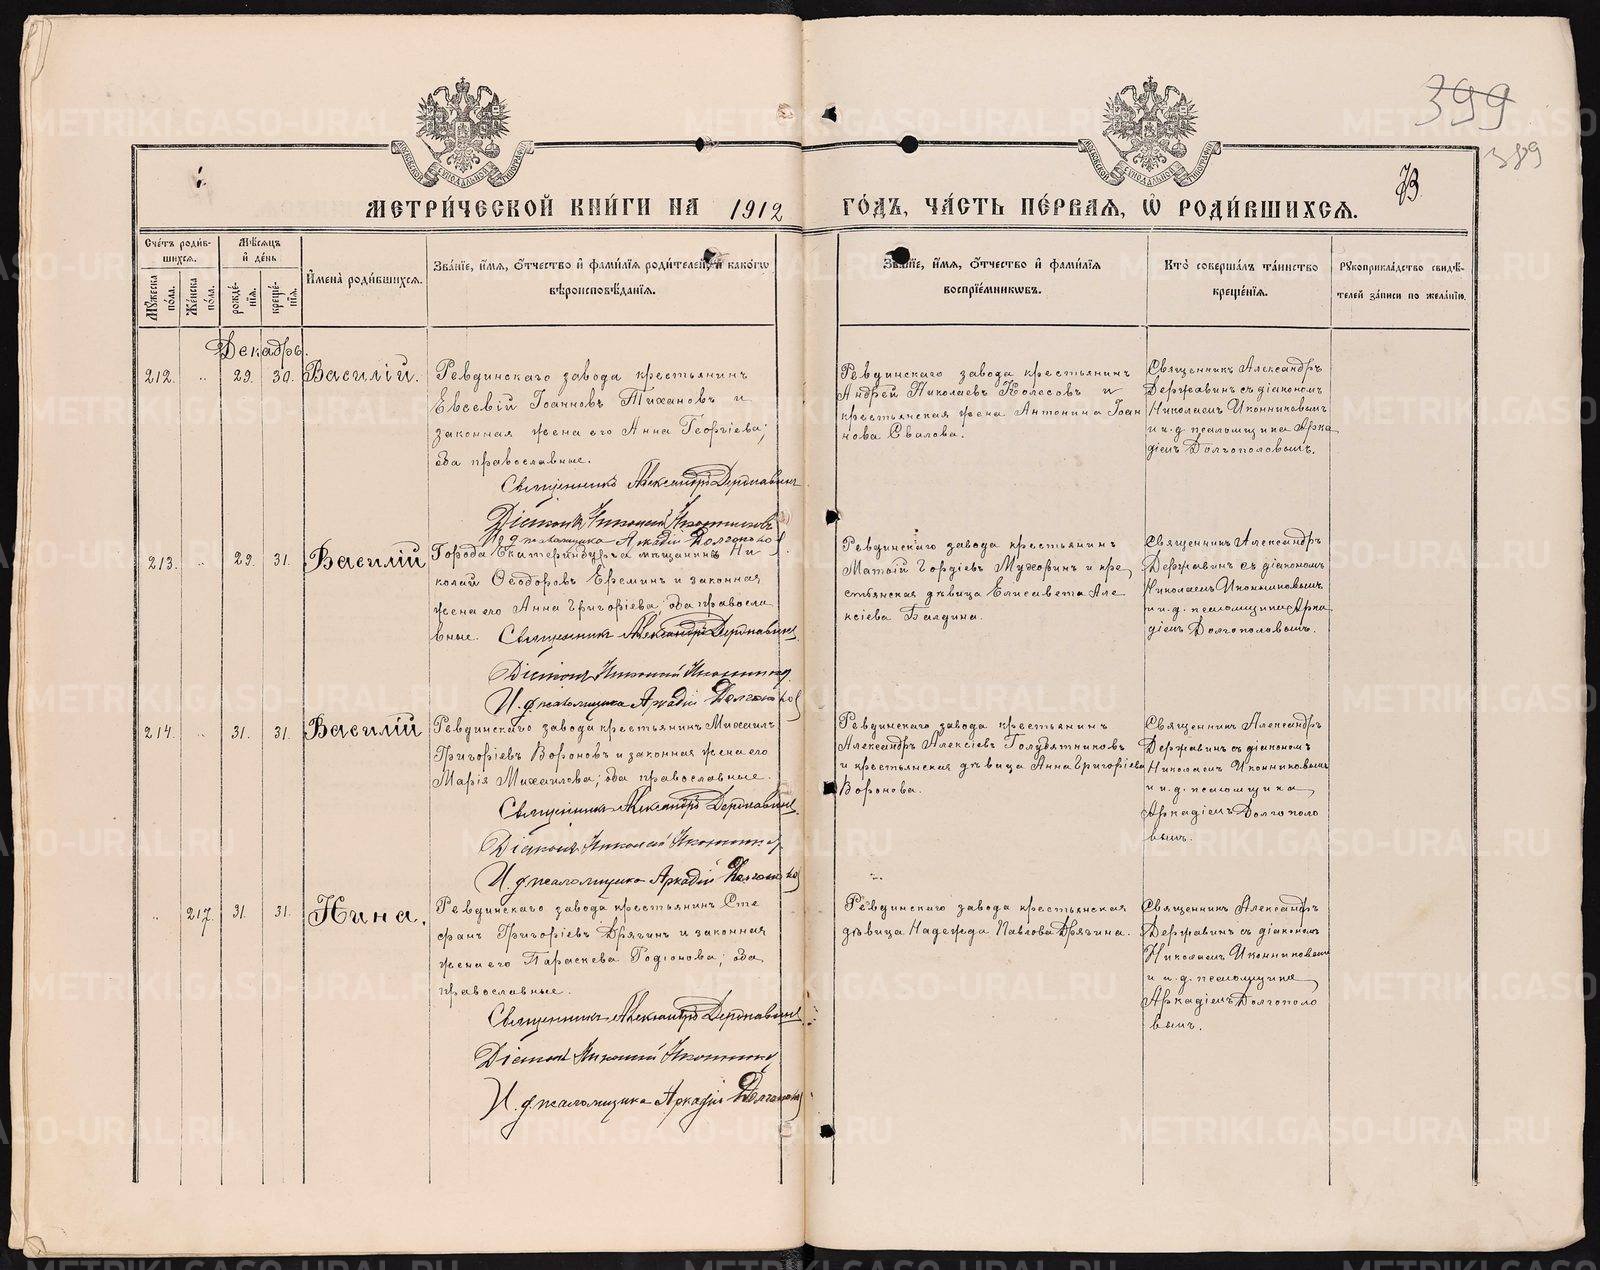 399
389
73
МЕТРИ́ЧЕСКОЙ КНИ́ГИ НА 1912 ГО́ДЪ, ЧА́СТЬ ПЕ́РВАЯ, Ѡ РОДИ́ВШИХСЯ.
Сче́тъ роди́в-
шихся.
Мꙋ́жеска по́ла.
Же́нска по́ла.
Мѣ́сяцъ и де́нь
рожде́-нїя.
креще́-нїя.
И҆мена̀ роди́вшихся.
Зва́нїе, и҆́мя, ѻ҆́тчество и҆ фами́лїя роди́телей, и҆ како́гѡ
вѣроисповѣ́данїя.
Зва́нїе, и҆́мя, ѻ҆́тчество и҆ фами́лїя
воспрїе́мникѡвъ.
Кто̀ соверша́лъ та́инство
креще́нїя.
Рꙋкоприкла́дство свидѣ́-
телей за́писи по жела́нїю.
Декабрь.
212. „ 29. 30. Василій.
Ревдинскаго завода крестьянинъ
Евсевій Іоанновъ Тихановъ и
законная жена его Анна Георгіева;
оба православные.
Священникъ Александръ Державинъ
Діаконъ Николай Иконниковъ
И. д. псаломщика Аркадій Долгополов
Ревдинскаго завода крестьянинъ
Андрей Николаевъ Колесовъ и
крестьянская жена Антонина Іоан
нова Свалова.
Священникъ Александръ
Державинъ съ діакономъ
Николаемъ Иконниковымъ
и и. д. псаломщика Арка
діемъ Долгополовымъ.
213. „ 29. 31. Василій
Города Екатеринбурга мѣщанинъ Ни
колай Ѳеодоровъ Ереминъ и законная
жена его Анна Григоріева; оба правосла
вные. Священникъ Александръ Державинъ
Діаконъ Николай Иконников
И. д. псаломщика Аркадій Долгополов
Ревдинскаго завода крестьянинъ
Матѳій Гордіевъ Мухоринъ и кре
стьянская дѣвица Елисавета Але
ксіева Балдина.
Священникъ Александръ
Державинъ съ діакономъ
Николаемъ Иконниковымъ
и и. д. псаломщика Арка
діемъ Долгополовымъ.
214. „ 31. 31. Василій
Ревдинскаго завода крестьянинъ Михаилъ
Григоріевъ Вороновъ и законная жена его
Марія Михаилова; оба православные.
Священникъ Александръ Державинъ
Діаконъ Николай Иконников
И. д. псаломщика Аркадій Долгополов
Ревдинскаго завода крестьянинъ
Александръ Алексіевъ Голубятниковъ
и крестьянская дѣвица Анна Григоріева
Воронова.
Священникъ Александръ
Державинъ съ діакономъ
Николаемъ Иконниковымъ
и и. д. псаломщика
Аркадіемъ Долгополо
вымъ.
„ 217. 31. 31. Нина.
Ревдинскаго завода крестьянинъ Сте
фанъ Григоріевъ Дрягинъ и законная
жена его Параскева Родіонова; оба
православные.
Священникъ Александръ Державинъ
Діаконъ Николай Иконников
И. д. псаломщика Аркадій Долгополов
Ревдинскаго завода крестьянская
дѣвица Надежда Павлова Дрягина.
Священникъ Александръ
Державинъ съ діакономъ
Николаемъ Иконниковымъ
и и. д. псаломщика
Аркадіемъ Долгополо
вымъ.
METRIKI.GASO-URAL.RU